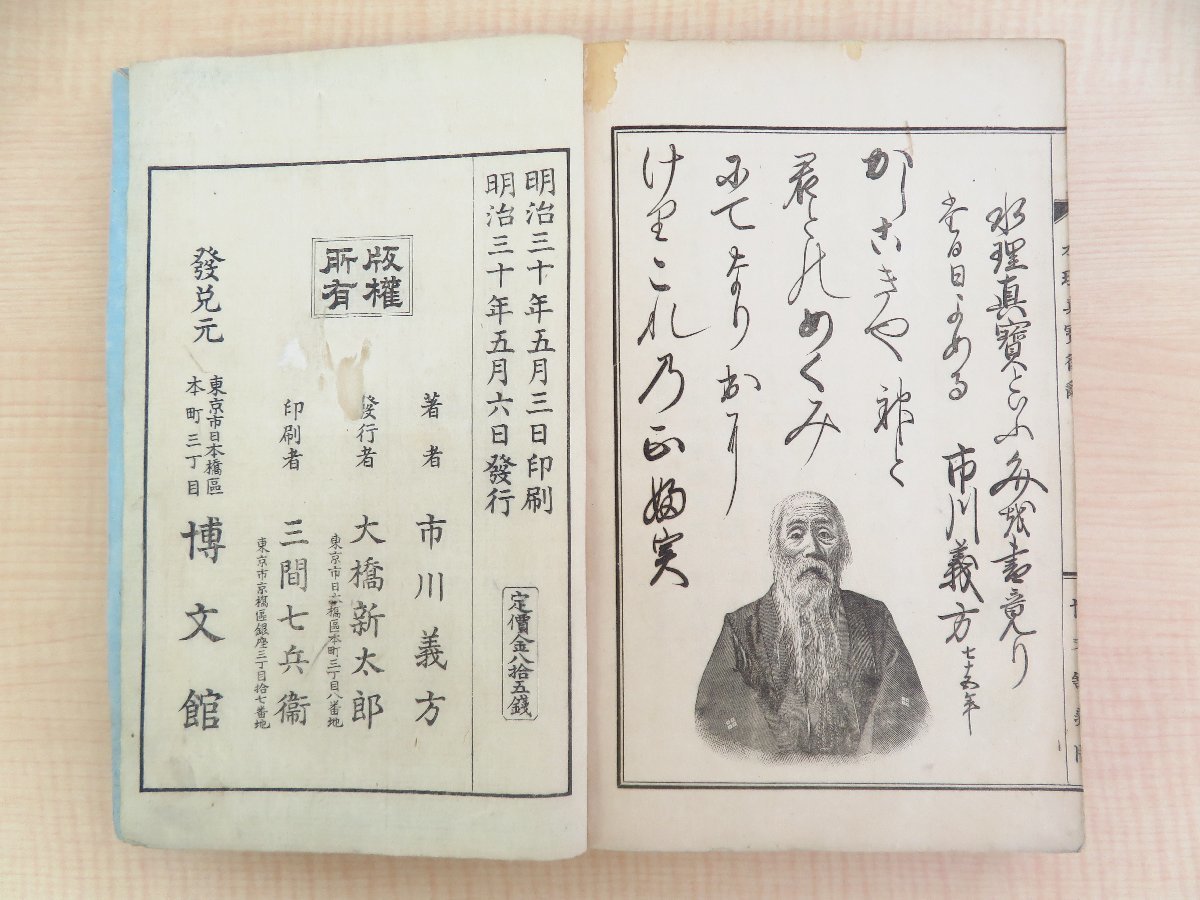 水理真寶といふ文を書竟り
ける日よめる 市川義方 七十六年
かしこきや神と
君とのめくみ
にてなり出に
けりこれの正婦実
明治三十年五月三日印刷
明治三十年五月六日發行
定價金八拾五錢
版權
所有
著者 市川義方
發行者 大橋新太郎
東京市日本橋區本町三丁目八番地
印刷者 三間七兵衞
東京市京橋區銀座三丁目拾七番地
發兌元 東京市日本橋區
本町三丁目 博文館